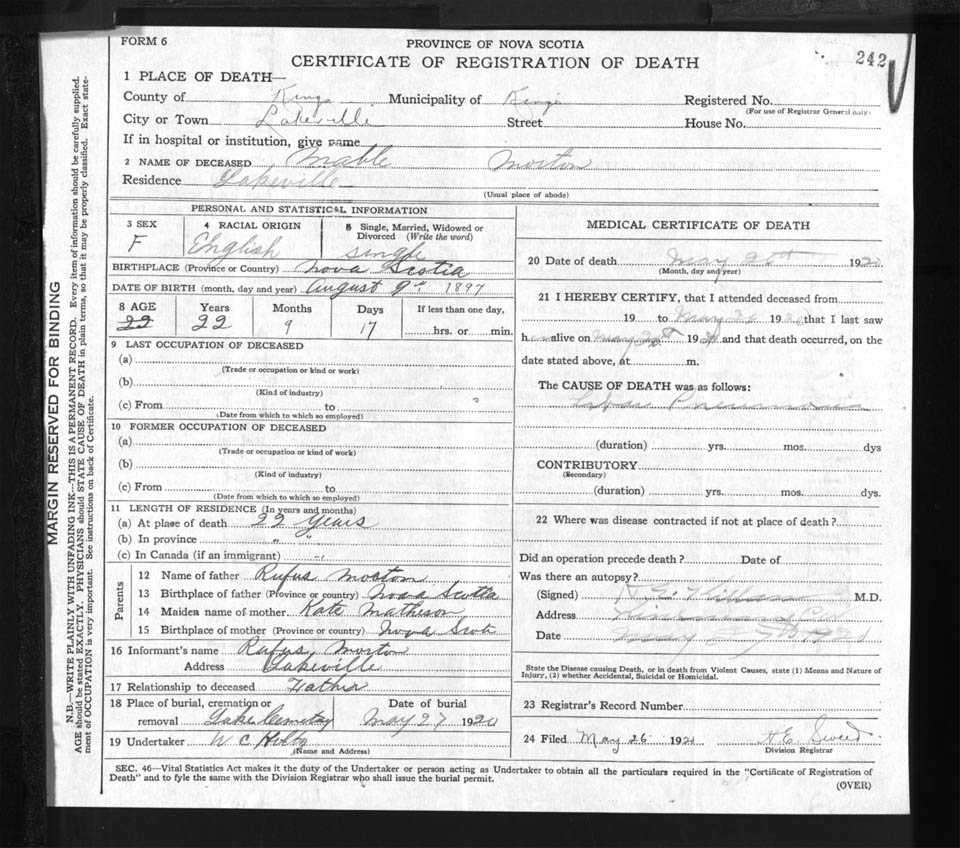 FORM 6
PROVINCE OF NOVA SCOTIA
CERTIFICATE OF REGISTRATION OF DEATH
242
1 PLACE OF DEATH—
County of Kings Municipality of Kings Registered No.
(For use of Registrar General only)
City or Town Lakeville Street House No.
If in hospital or institution, give name
2 NAME OF DECEASED Mable Morton
Residence Lakeville
(Usual place of abode)
PERSONAL AND STATISTICAL INFORMATION
3 SEX 4 RACIAL ORIGIN 5 Single, Married, Widowed or Divorced (Write the word)
F English single
BIRTHPLACE (Province or Country) Nova Scotia
DATE OF BIRTH (month, day and year) August 9th 1897
8 AGE Years Months Days If less than one day,
22 22 9 17 hrs. or min.
9 LAST OCCUPATION OF DECEASED
(a)
(Trade or occupation or kind or work)
(b)
(Kind of industry)
(c) From to
(Date from which to which so employed)
10 FORMER OCCUPATION OF DECEASED
(a)
(Trade or occupation or kind of work)
(b)
(Kind of industry)
(c) From to
(Date from which to which so employed)
11 LENGTH OF RESIDENCE (In years and months)
(a) At place of death 22 Years
(b) In province " "
(c) In Canada (if an immigrant)
Parents
12 Name of father Rufus Morton
13 Birthplace of father (Province or country) Nova Scotia
14 Maiden name of mother Kate Matheson
15 Birthplace of mother (Province or country) Nova Scoti
16 Informant's name Rufus Morton
Address Lakeville
17 Relationship to deceased Father
18 Place of burial, cremation or Date of burial
removal Lake Cemetry May 27 192
19 Undertaker W C
(Name and Address)
MEDICAL CERTIFICATE OF DEATH
20 Date of death May 192
(Month, day and year)
21 I HEREBY CERTIFY, that I attended deceased from
19 to May 192 that I last saw
h alive on May 19 and that death occurred, on the
date stated above, at m.
The CAUSE OF DEATH was as follows:
Pneumonia
(duration) yrs. mos. dys
CONTRIBUTORY
(Secondary)
(duration) yrs. mos. dys.
22 Where was disease contracted if not at place of death?
Did an operation precede death? Date of
Was there an autopsy?
(Signed) M.D.
Address
Date May
State the Disease causing Death, or in death from Violent Causes, state (1) Means and Nature of
Injury, (2) whether Accidental, Suicidal or Homicidal.
23 Registrar's Record Number
24 Filed May 26 192
Division Registrar
SEC. 46—Vital Statistics Act makes it the duty of the Undertaker or person acting as Undertaker to obtain all the particulars required in the "Certificate of Registration of
Death" and to fyle the same with the Division Registrar who shall issue the burial permit.
(OVER)
MARGIN RESERVED FOR BINDING
N.B.—WRITE PLAINLY WITH UNFADING INK—THIS IS A PERMANENT RECORD. Every item of information should be carefully supplied.
AGE should be stated EXACTLY. PHYSICIANS should STATE CAUSE OF DEATH in plain terms, so that it may be properly classified. Exact state-
ment of OCCUPATION is very important. See instructions on back of Certificate.